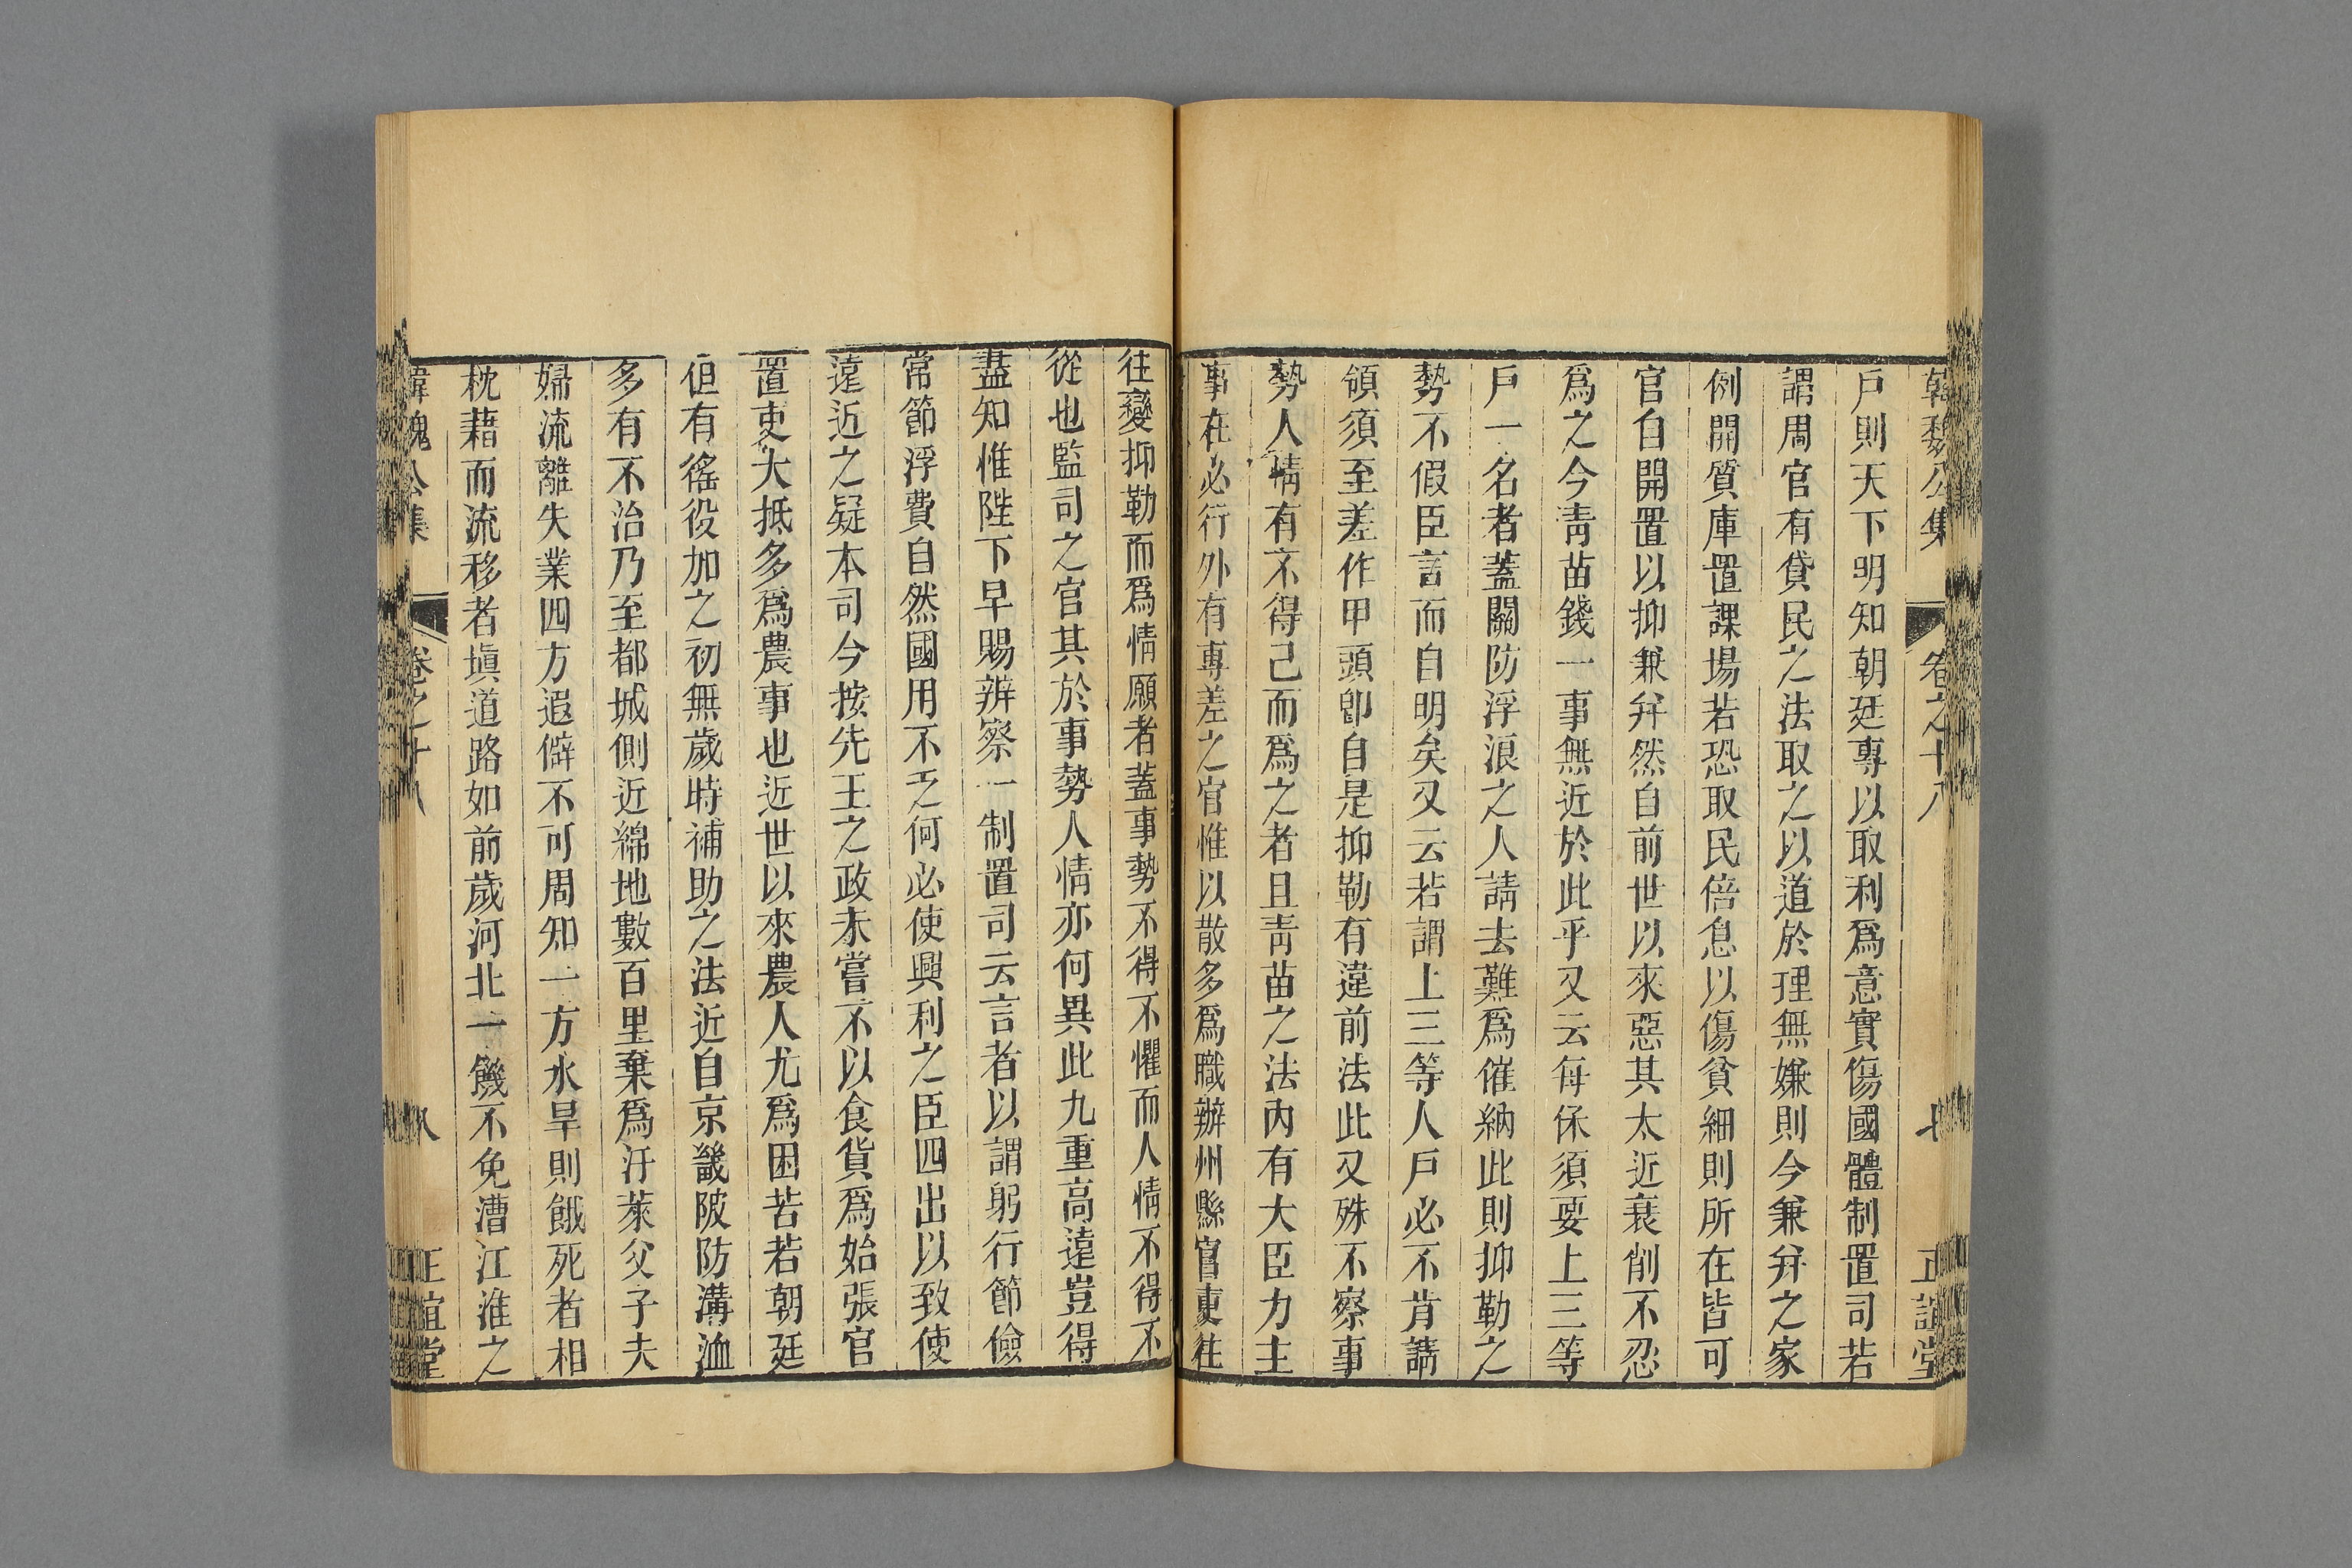 韓魏公集 卷之十八 七 正誼堂
戶則天下明知朝廷專以取利爲意實傷國體制置司若
謂周官有貸民之法取之以道於理無嫌則今兼弁之家
例開質庫置課場若恐取民倍息以傷貧細則所在皆可
官自開置以抑兼弁然自前世以來惡其太近裒削不忍
爲之今靑苗錢一事無近於此乎又云每保須要上三等
戶一名者蓋關防浮浪之人請去難爲催納此則抑勒之
勢不假臣言而自明矣又云若謂上三等人戶必不肯請
領須至差作甲頭卽自是抑勒有違前法此又殊不察事
勢人情有不得已而爲之者且靑苗之法內有大臣力主
事在必行外有專差之官惟以散多爲職辦州縣官吏往
往變抑勒而爲情願者蓋事勢不得不懼而人情不得不
從也監司之官其於事勢人情亦何異此九重高遠豈得
盡知惟陛下早賜辨察一制置司云言者以謂躬行節儉
常節浮費自然國用不乏何必使興利之臣四出以致使
遠近之疑本司今按先王之政未嘗不以食貨爲始張官
置吏大抵多爲農事也近世以來農人尤爲困苦若朝廷
但有徭役加之初無歲時補助之法近自京畿陂防溝洫
多有不治乃至都城側近綿地數百里棄爲汙萊父子夫
婦流離失業四方遐僻不可周知一方水旱則餓死者相
枕藉而流移者塡道路如前歲河北一饑不免漕江淮之
韓魏公集 卷之十八 八 正誼堂